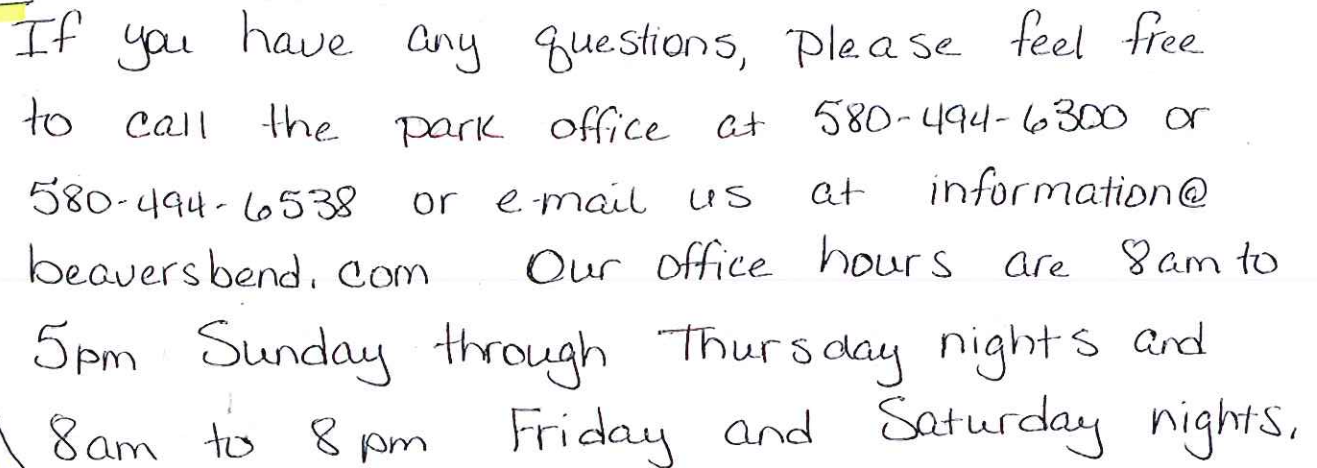 If you have any questions, please feel free
to call the park office at 580-494-6300 or
580-494-6538 or e-mail us at information@
beaversbend.com Our office hours are 8am to
5pm Sunday through Thursday nights and
8am to 8pm Friday and Saturday nights.